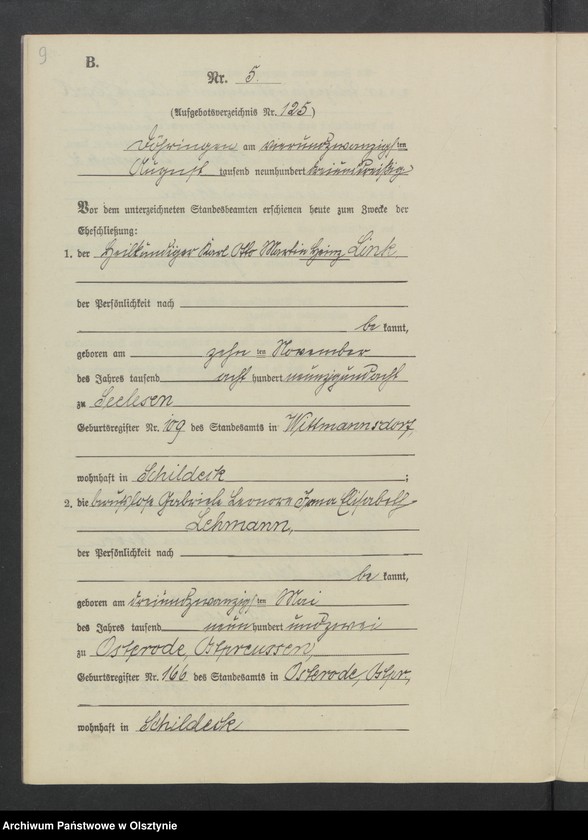 9
B.
Nr. 5.
(Aufgebotsverzeichnis Nr. 125)
Döhringen am vierundzwanzigsten
August tausend neunhundert dreiunddreißig
Vor dem unterzeichneten Standesbeamten erschienen heute zum Zwecke der
Eheschließung:
1. der Heilkundiger Karl Otto Martin Heinz Link
der Persönlichkeit nach
be kannt,
geboren am zehn ten November
des Jahres tausend acht hundert neunzigundacht
zu Seelesen
Geburtsregister Nr. 109 des Standesamts in Wittmannsdorf,
wohnhaft in Schildeck ;
2. die berufslose Gabriele Leonore Irma Elisabeth
Lehmann,
der Persönlichkeit nach
be kannt,
geboren am dreiundzwanzigsten Mai
des Jahres tausend neun hundert undzwei
zu Osterode, Ostpreussen,
Geburtsregister Nr. 166 des Standesamts in Osterode, Ostpr,
wohnhaft in Schildeck
Archiwum Państwowe w Olsztynie